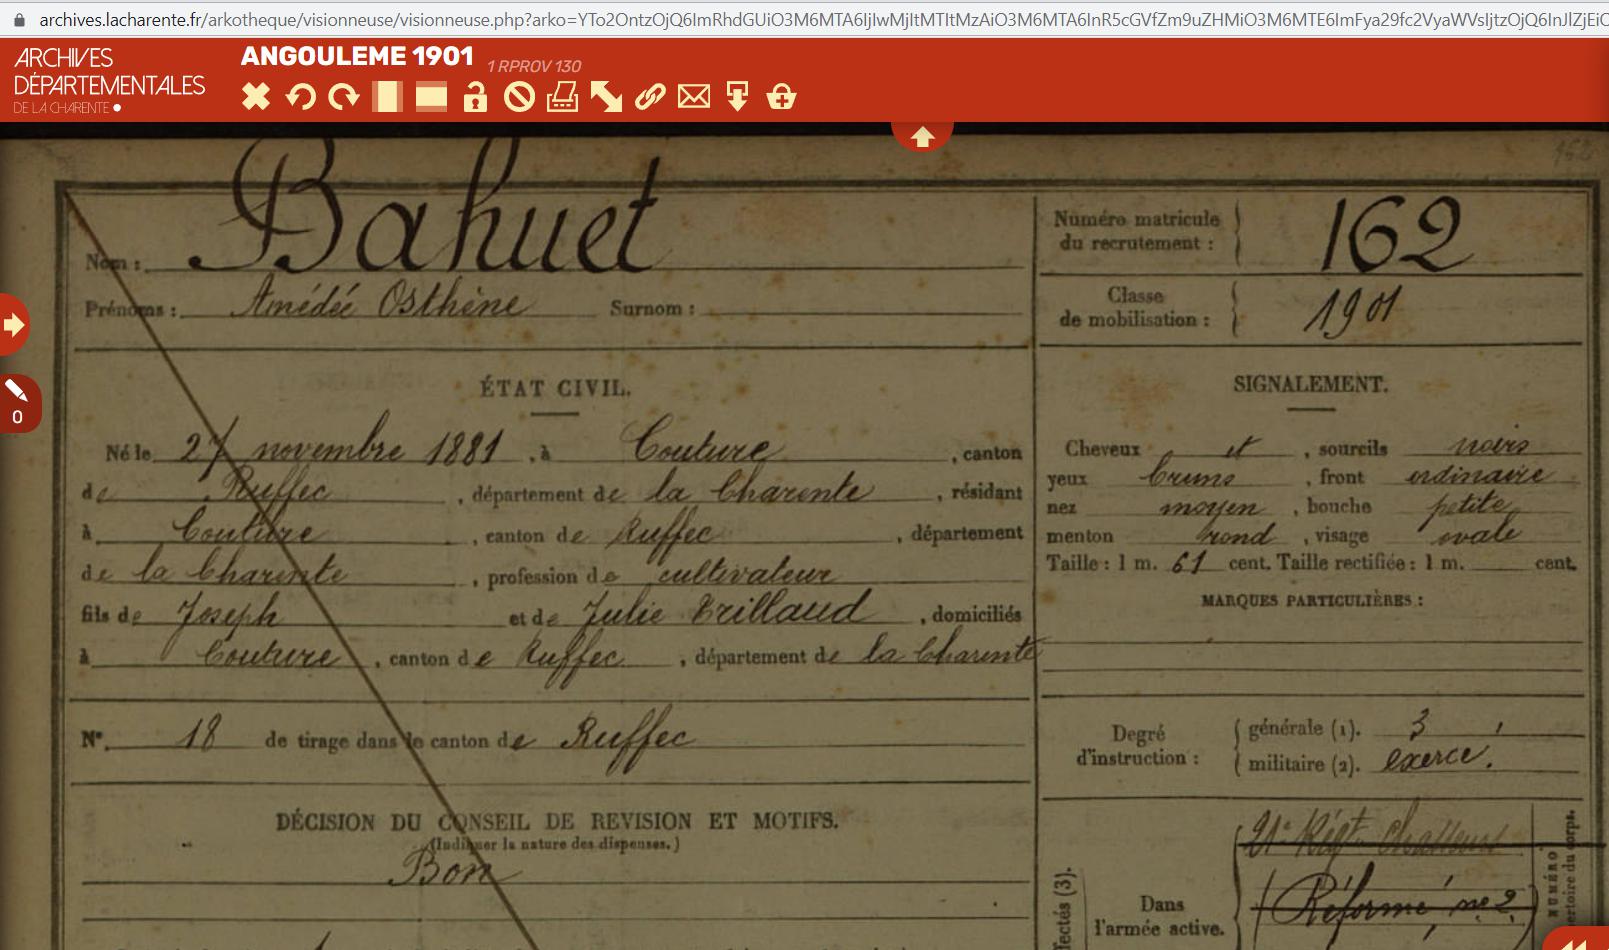 archives.lacharente.fr/arkotheque/visionneuse/visionneuse.php?arko=
ARCHIVES
DÉPARTEMENTALES
DE LA CHARENTE
ANGOULEME 1901 1 RPROV 130
0
162
Nom : Bahuet
Prénoms : Amédée Osthène Surnom :
Numéro matricule
du recrutement : 162
Classe
de mobilisation : 1901
ÉTAT CIVIL.
Né le 27 novembre 1881, à Couture, canton
de Ruffec, département de la Charente, résidant
à Couture, canton de Ruffec, département
de la Charente, profession de cultivateur
fils de Joseph et de Julie Trillaud, domiciliés
à Couture, canton de Ruffec, département de la Charente
N° 18 de tirage dans le canton de Ruffec
DÉCISION DU CONSEIL DE REVISION ET MOTIFS.
(Indiquer la nature des dispenses.)
Bon
SIGNALEMENT.
Cheveux et, sourcils noirs
yeux bruns, front ordinaire
nez moyen, bouche petite
menton rond, visage ovale
Taille : 1 m. 61 cent. Taille rectifiée : 1 m. cent.
MARQUES PARTICULIÈRES :
Degré
d'instruction :
générale (1). 3
militaire (2). exercé.
Dans
l'armée active.
21e Régt Chasseurs
Réformé n° 2
NUMÉRO